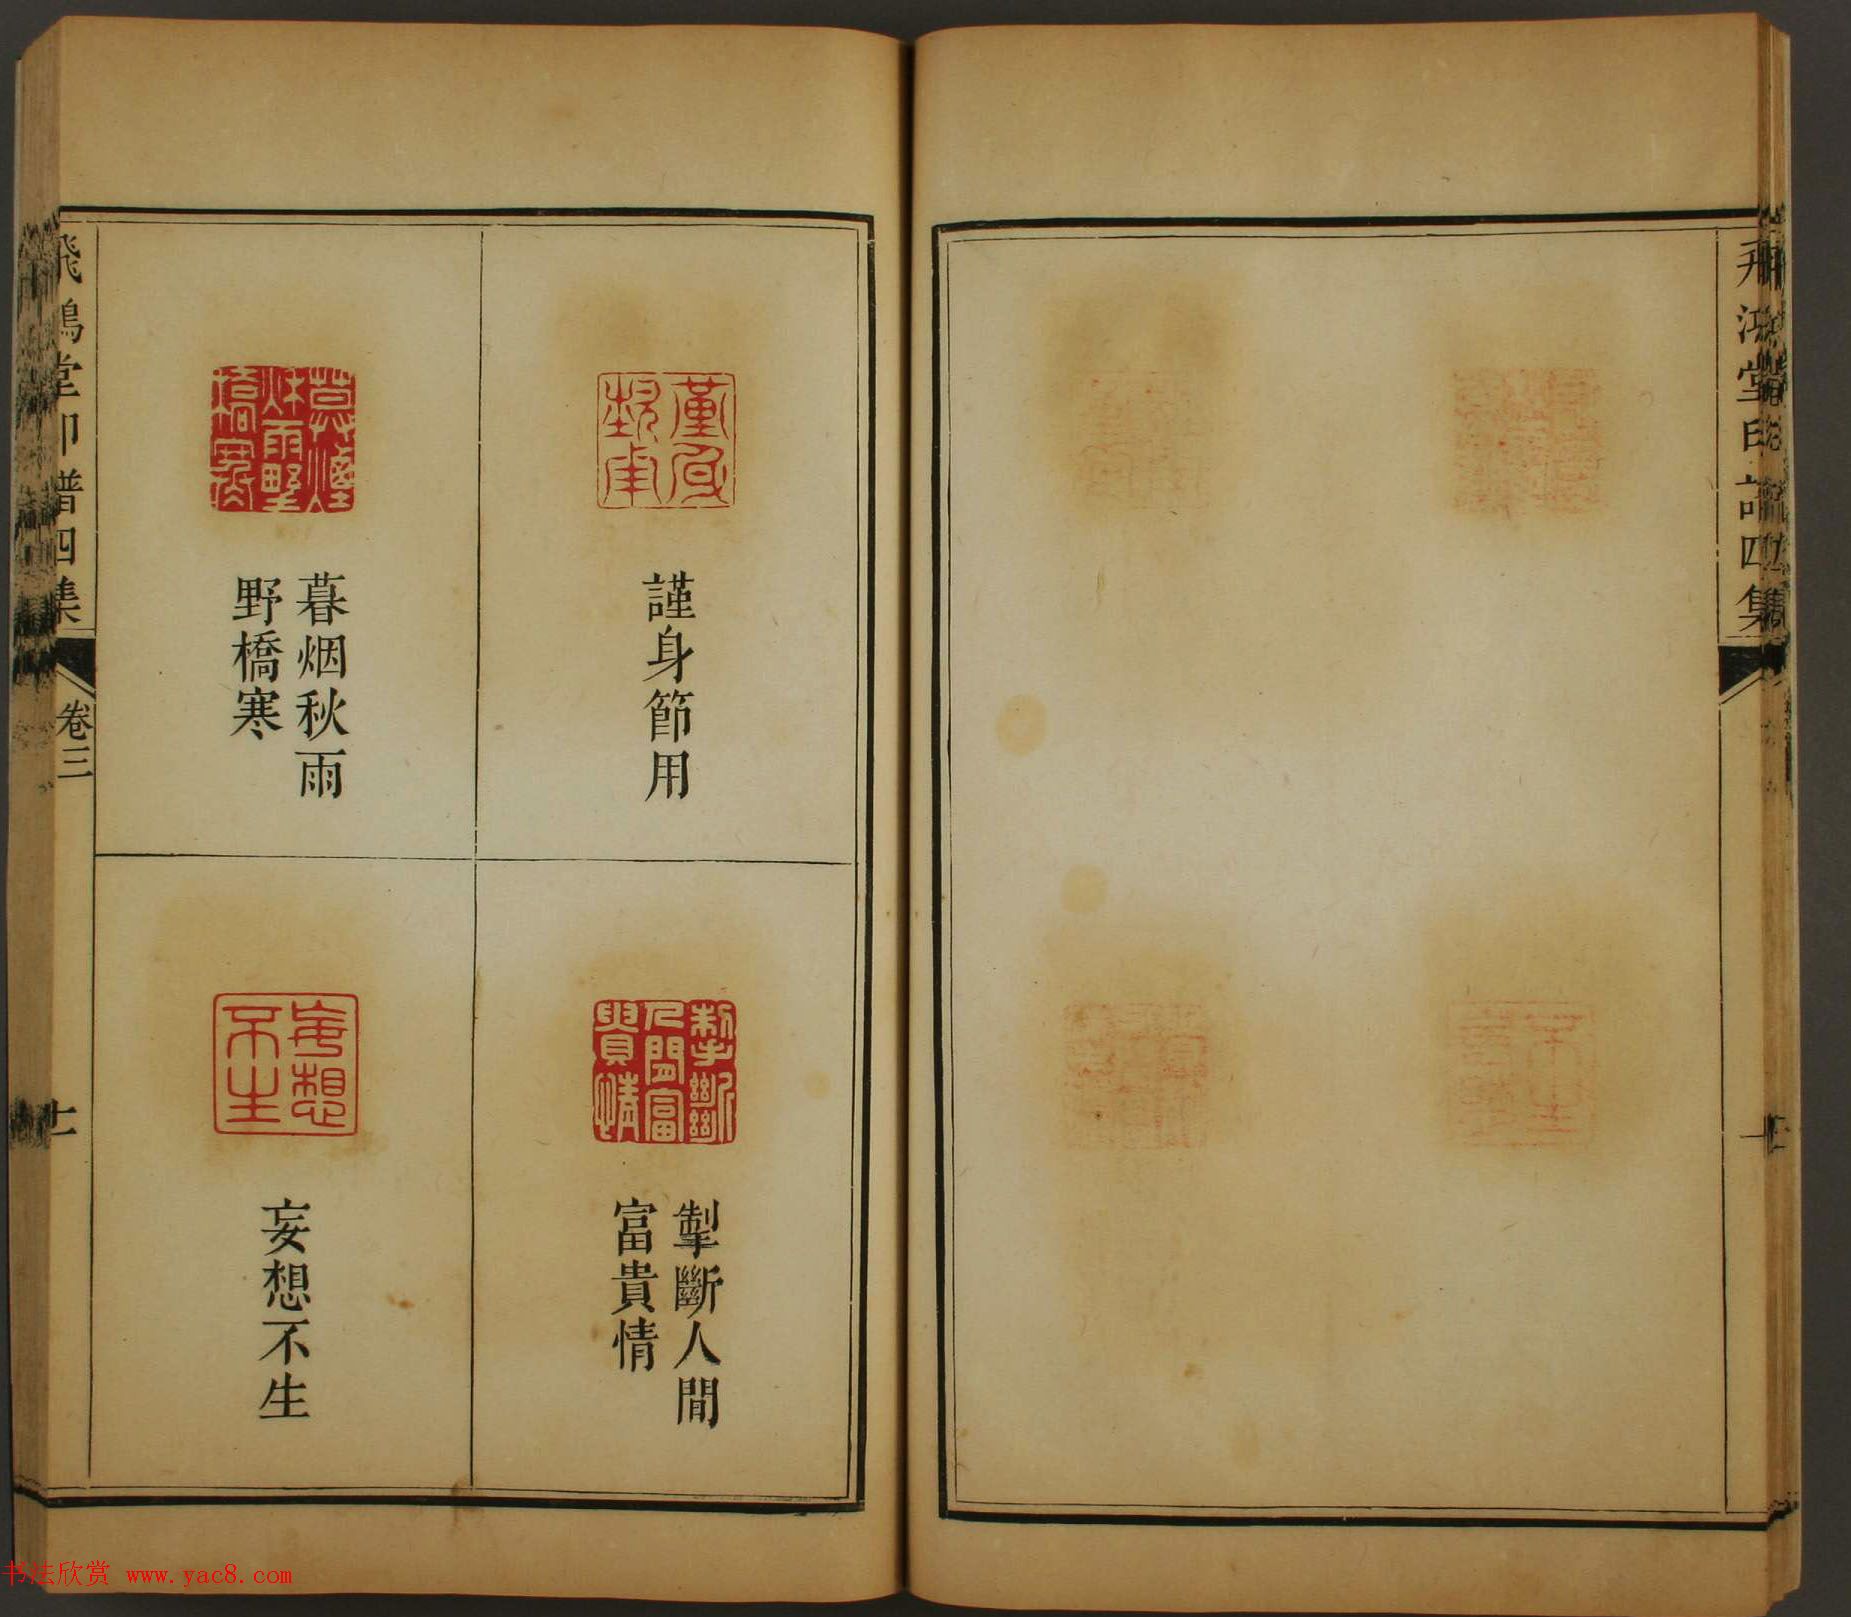 飛鴻堂印譜四集
謹身節用
掣斷人間
富貴情
暮烟秋雨
野橋寒
妄想不生
飛鴻堂印譜四集
卷三
十一
书法欣赏 www.yac8.com